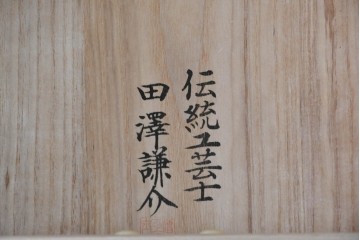 伝統工芸士
田澤謙介